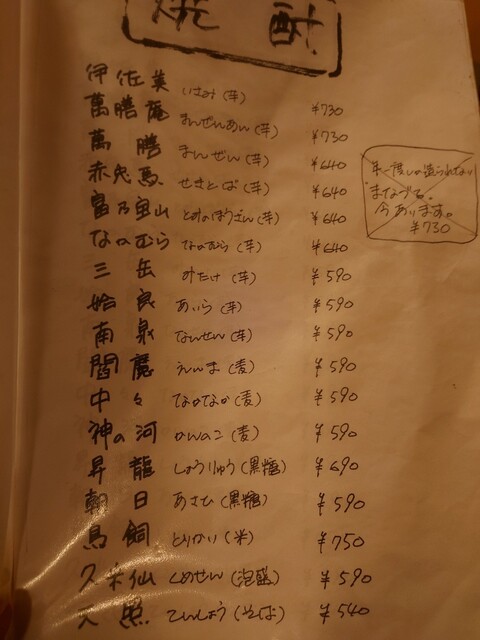 焼酎
伊佐美 いさみ(芋) ¥730
萬膳庵 まんぜんあん(芋) ¥730
萬膳 まんぜん(芋) ¥640
赤兎馬 せきとば(芋) ¥640
富乃宝山 とみのほうざん(芋) ¥640
なかむら なかむら(芋) ¥640
三岳 みたけ(芋) ¥590
姶良 あいら(芋) ¥590
南泉 なんせん(芋) ¥590
閻魔 えんま(麦) ¥590
中々 なかなか(麦) ¥590
神の河 かんのこ(麦) ¥590
昇龍 しょうりゅう(黒糖) ¥690
朝日 あさひ(黒糖) ¥590
鳥飼 とりかい(米) ¥750
久米仙 くめせん(泡盛) ¥590
天照 てんしょう(そば) ¥540
年一度しか造られない
まなづる。
今あります。
¥730